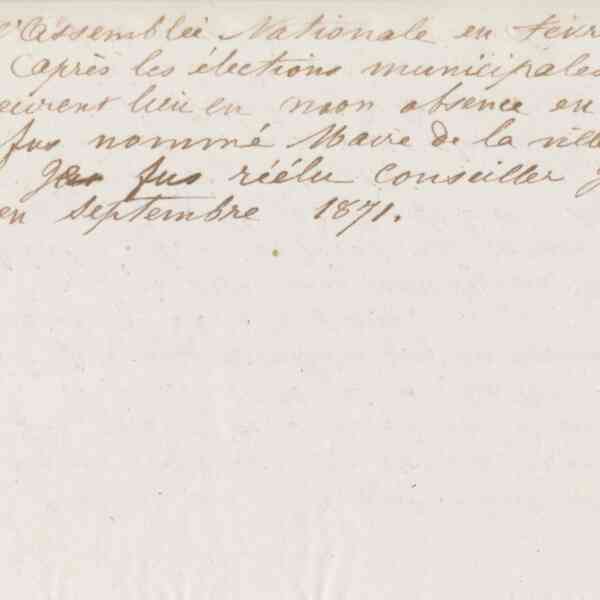 l'Assemblée Nationale en Févr
Après les élections municipales
eurent lieu en mon absence en
fus nommé Maire de la ville
Je fus réélu Conseiller
en septembre 1871.